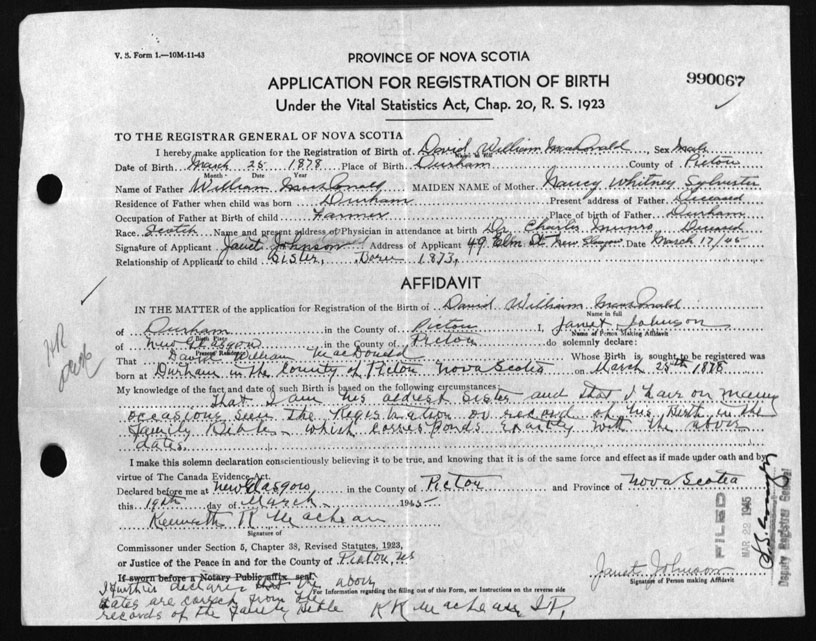 V. S. Form 1.—10M-11-43
PROVINCE OF NOVA SCOTIA
APPLICATION FOR REGISTRATION OF BIRTH
990067
Under the Vital Statistics Act, Chap. 20, R. S. 1923
TO THE REGISTRAR GENERAL OF NOVA SCOTIA
I hereby make application for the Registration of Birth of David William MacDonald, Sex Male
Name in full
Date of Birth March 25 1878 Place of Birth Durham County of Pictou
Month Date Year
Name of Father William MacDonald MAIDEN NAME of Mother Nancy Whitney Sylvester
Residence of Father when child was born Durham Present address of Father Deceased
Occupation of Father at Birth of child Farmer Place of Birth of Father Durham
Race Scotch Name and present address of Physician in attendance at birth Dr. Charles Munro, Deceased
Signature of Applicant Janet Johnson Address of Applicant 49 Elm St. New Glasgow Date March 17/45
Relationship of Applicant to child Sister, Born 1873.
AFFIDAVIT
IN THE MATTER of the application for Registration of the Birth of David William MacDonald
Name in full
of Durham in the County of Pictou I, Janet Johnson
Birth Place Name of Person Making Affidavit
of New Glasgow in the County of Pictou do solemnly declare:
Present Residence
That David William MacDonald Whose Birth is sought to be registered was
born at Durham in the County of Pictou Nova Scotia on March 25th 1878
My knowledge of the fact and date of such Birth is based on the following circumstances:
That I am his oldest sister and that I have on many
occasions seen the Registration or record of his Birth in the
family Bible which corresponds exactly with the above
dates.
I make this solemn declaration conscientiously believing it to be true, and knowing that it is of the same force and effect as if made under oath and by
virtue of The Canada Evidence Act.
Declared before me at New Glasgow in the County of Pictou and Province of Nova Scotia
this 19th day of March 1945
Kenneth K MacLean
Signature of
Commissioner under Section 5, Chapter 38, Revised Statutes, 1923,
or Justice of the Peace in and for the County of Pictou, NS
If sworn before a Notary Public affix seal.
Janet Johnson
Signature of Person making Affidavit
For Information regarding the filling out of this Form, see Instructions on the reverse side
I further declare that the above
dates are correct from the
records of the Family Bible
K K MacLean J.P.
FILED
MAR 22 1945
Deputy Registrar General